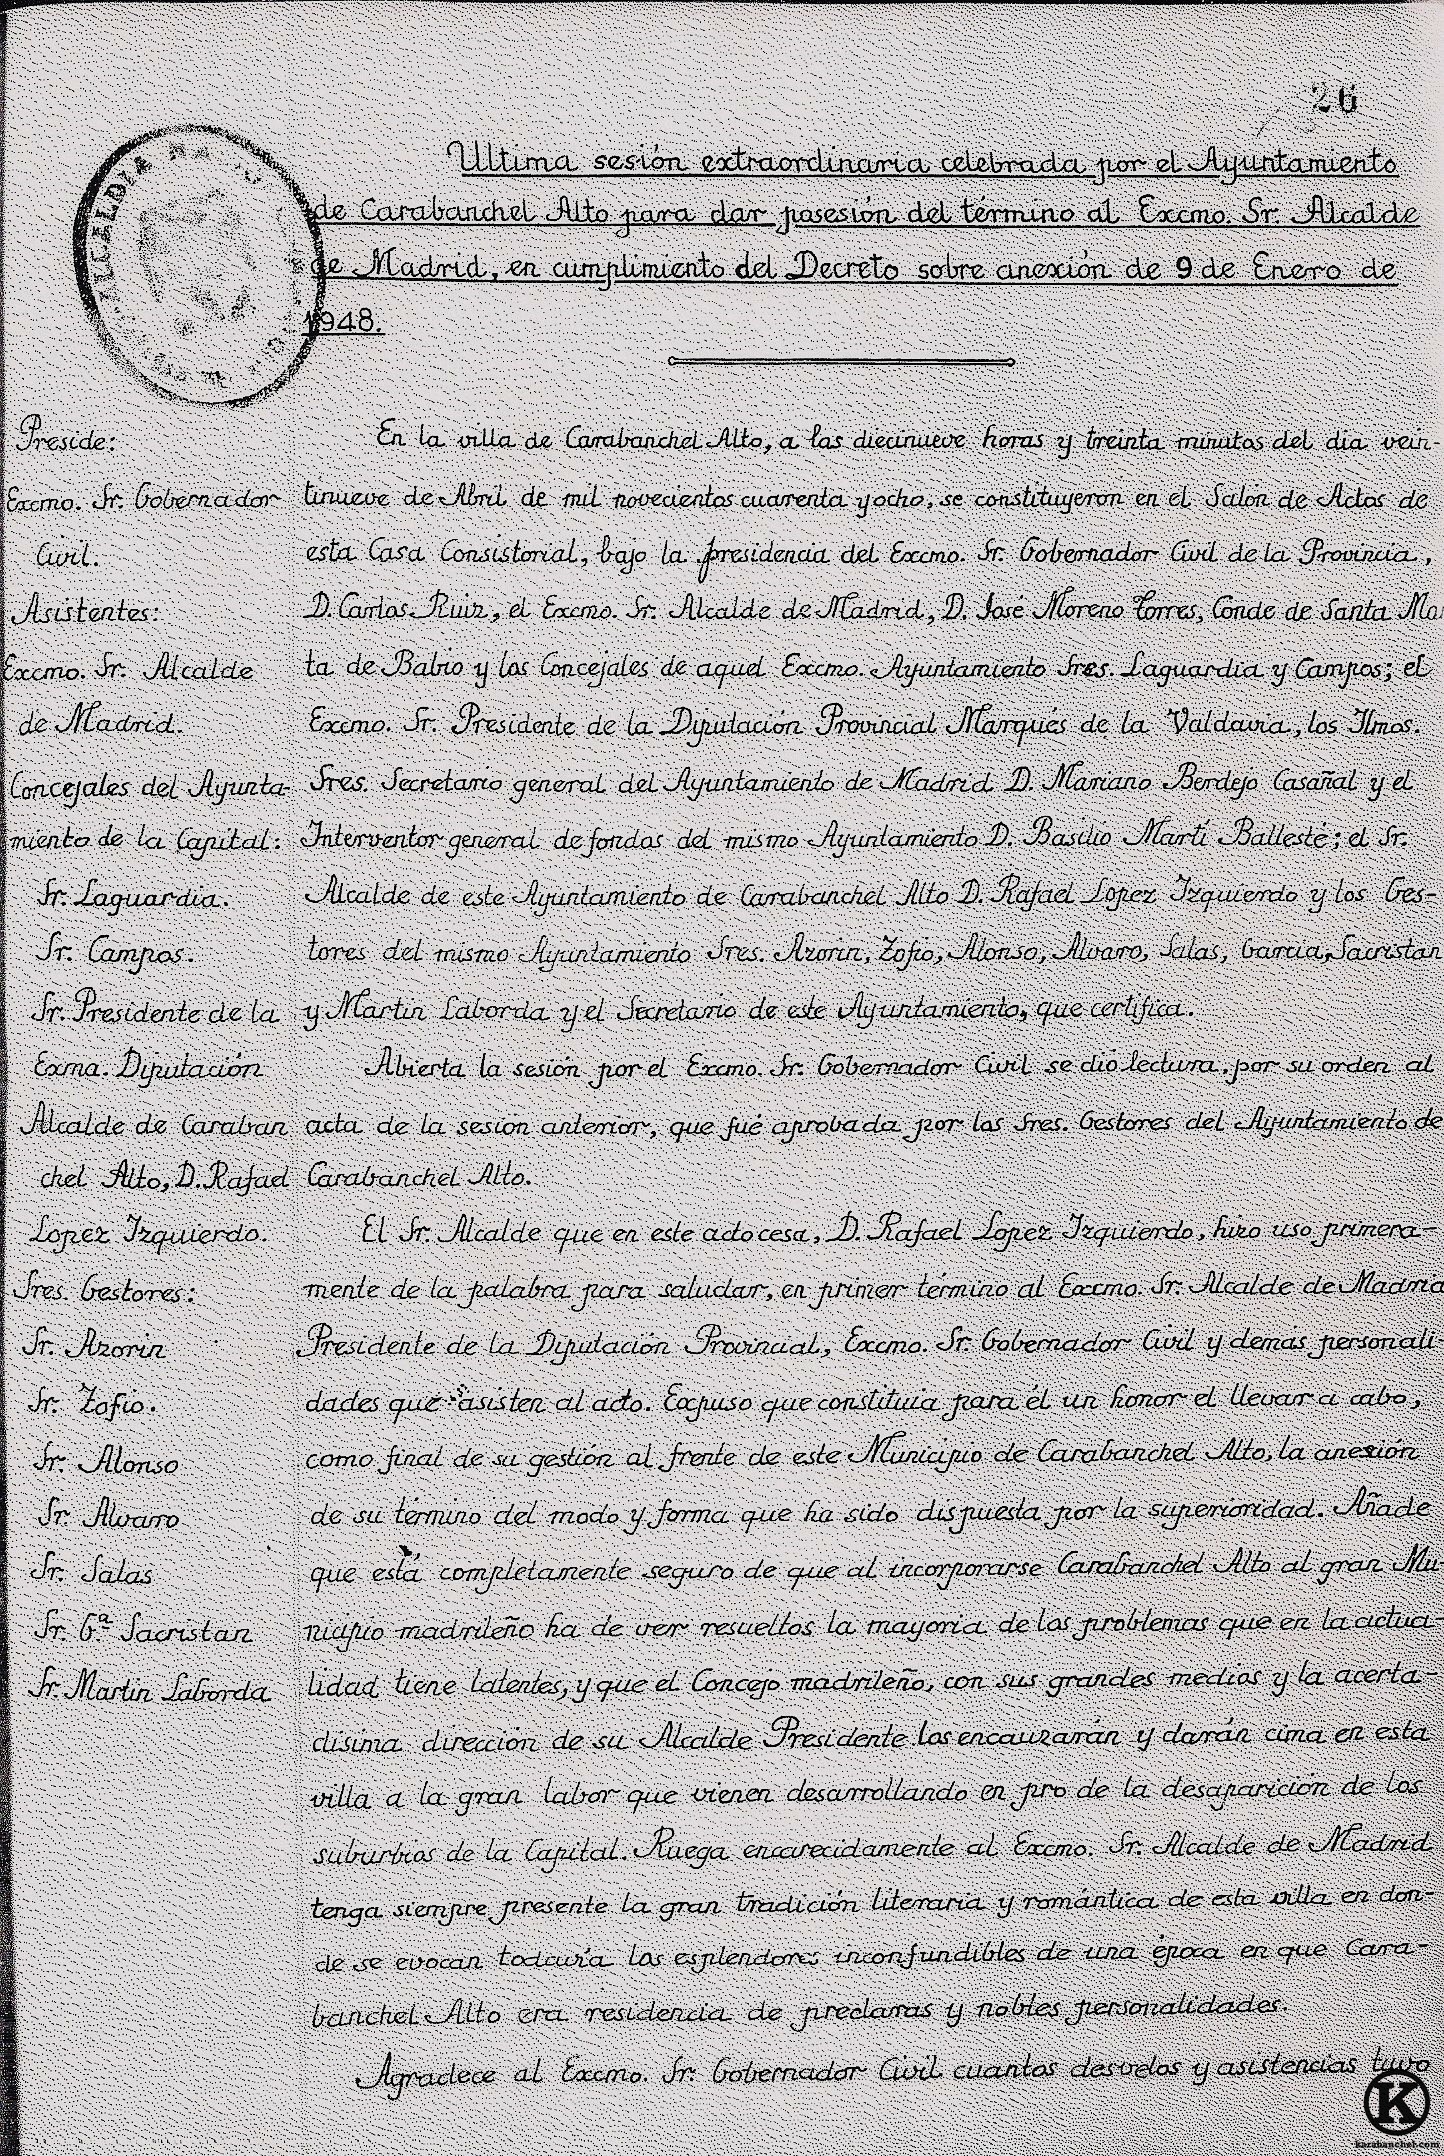 26
ALCALDIA
Ultima sesión extraordinaria celebrada por el Ayuntamiento
de Carabanchel Alto para dar posesión del término al Excmo. Sr. Alcalde
de Madrid, en cumplimiento del Decreto sobre anexión de 9 de Enero de
1948.
Preside:
Excmo. Sr. Gobernador
Civil.
Asistentes:
Excmo. Sr. Alcalde
de Madrid.
Concejales del Ayunta-
miento de la Capital:
Sr. Laguardia.
Sr. Campos.
Sr. Presidente de la
Exma. Diputación
Alcalde de Caraban
chel Alto, D. Rafael
Lopez Izquierdo.
Sres. Gestores:
Sr. Azorin
Sr. Zofio.
Sr. Alonso
Sr. Alvaro
Sr. Salas
Sr. G.ª Sacristan
Sr. Martin Laborda
En la villa de Carabanchel Alto, a las diecinueve horas y treinta minutos del dia vein-
tinueve de Abril de mil novecientos cuarenta y ocho, se constituyeron en el Salón de Actos de
esta Casa Consistorial, bajo la presidencia del Excmo. Sr. Gobernador Civil de la Provincia,
D. Carlos Ruiz, el Excmo. Sr. Alcalde de Madrid, D. José Moreno Torres, Conde de Santa Mar
ta de Babio y los Concejales de aquel Excmo. Ayuntamiento Sres. Laguardia y Campos; el
Excmo. Sr. Presidente de la Diputación Provincial Marqués de la Valdavia, los Ilmos.
Sres. Secretario general del Ayuntamiento de Madrid D. Mariano Berdejo Casañal y el
Interventor general de fondos del mismo Ayuntamiento D. Basilio Martí Ballesté; el Sr.
Alcalde de este Ayuntamiento de Carabanchel Alto D. Rafael Lopez Izquierdo y los Ges-
tores del mismo Ayuntamiento Sres. Azorin, Zofio, Alonso, Alvaro, Salas, Garcia, Sacristan
y Martin Laborda y el Secretario de este Ayuntamiento, que certifica.
Abierta la sesión por el Excmo. Sr. Gobernador Civil se dió lectura, por su orden al
acta de la sesión anterior, que fué aprobada por los Sres. Gestores del Ayuntamiento de
Carabanchel Alto.
El Sr. Alcalde que en este acto cesa, D. Rafael Lopez Izquierdo, hizo uso primera-
mente de la palabra para saludar, en primer término al Excmo. Sr. Alcalde de Madrid
Presidente de la Diputación Provincial, Excmo. Sr. Gobernador Civil y demás personali-
dades que asisten al acto. Expuso que constituia para él un honor el llevar a cabo,
como final de su gestión al frente de este Municipio de Carabanchel Alto, la anexión
de su término del modo y forma que ha sido dispuesta por la superioridad. Añade
que está completamente seguro de que al incorporarse Carabanchel Alto al gran Mu-
nicipio madrileño ha de ver resueltos la mayoria de los problemas que en la actua-
lidad tiene latentes, y que el Concejo madrileño, con sus grandes medios y la acerta-
disima dirección de su Alcalde Presidente los encauzarán y darán cima en esta
villa a la gran labor que vienen desarrollando en pro de la desaparición de los
suburbios de la Capital. Ruega encarecidamente al Excmo. Sr. Alcalde de Madrid
tenga siempre presente la gran tradición literaria y romántica de esta villa en don-
de se evocan todavía los esplendores inconfundibles de una época en que Cara-
banchel Alto era residencia de preclaras y nobles personalidades.
Agradece al Excmo. Sr. Gobernador Civil cuantos desvelos y asistencias tuvo
K
karabanchel.com